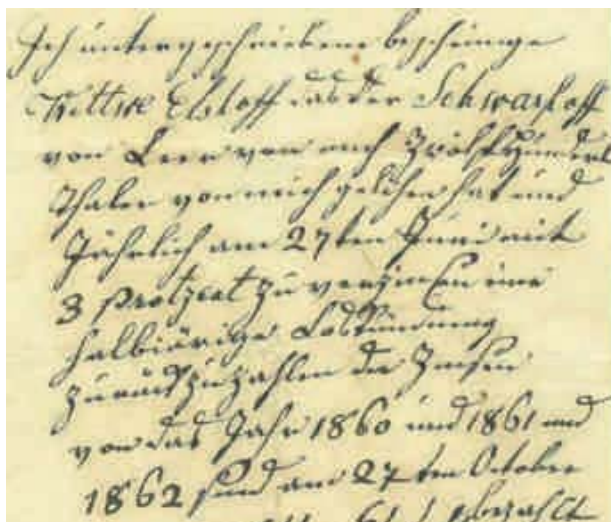 Ich unterschriebene bescheinige
Wittwe Elstoff das der Schwarhoff
von Leer von mich Zwölfhundert
Thaler von mich geliehen hat und
Jährlich am 27ten Juni mit
3 Protzent zu verzinsen eine
halbjärige Loskündung
zurück zu zahlen die Zinsen
von das Jahr 1860 und 1861 und
1862 sind am 27ten October
bezahlt